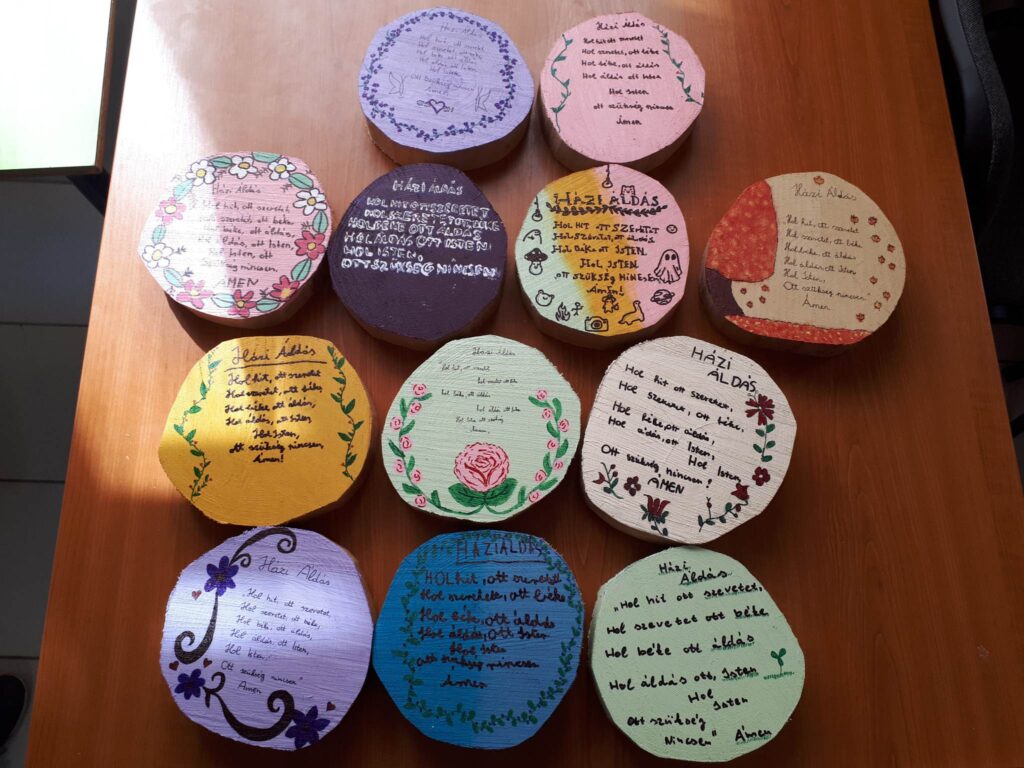 Házi Áldás
Hol hit, ott szeretet
Hol szeretet, ott béke
Hol béke, ott áldás
Hol áldás ott Isten
Hol Isten
Ott szükség nincsen
Ámen
Házi Áldás
Hol hit ott szeretet
Hol szeretet, ott béke
Hol béke, ott áldás
Hol áldás ott Isten
Hol Isten
ott szükség nincsen
Ámen
Házi Áldás
Hol hit, ott szeretet
Hol szeretet, ott béke
Hol béke, ott áldás,
Hol áldás, ott Isten,
Hol Isten, ott
szükség
nincsen
ÁMEN
HÁZI ÁLDÁS
HOL HIT OTT SZERETET
HOL SZERETET OTT BÉKE
HOL BÉKE OTT ÁLDÁS
HOL ÁLDÁS OTT ISTEN
HOL ISTEN,
OTT SZÜKSÉG NINCSEN!
HÁZI ÁLDÁS
HOL HIT OTT SZERETET
HOL SZERETET, OTT ÁLDÁS
HOL BÉKE OTT ISTEN
HOL ISTEN
OTT SZÜKSÉG NINCSEN
ÁMEN!
Házi Áldás
Hol hit, ott szeretet
Hol szeretet, ott béke
Hol béke, ott áldás
Hol áldás ott Isten
Hol Isten,
Ott szükség nincsen
Ámen
Házi Áldás
Hol hit, ott szeretet
Hol szeretet, ott béke
Hol béke ott áldás,
Hol áldás, ott Isten
Hol Isten,
ott szükség nincsen,
Ámen!
Házi Áldás
Hol hit, ott szeretet
Hol szeretet ott béke
Hol béke, ott áldás
Hol áldás ott Isten
Ámen
HÁZI
ÁLDÁS
Hol hit ott szeretet,
Hol szeretet, ott béke,
Hol béke, ott áldás,
Hol áldás, ott Isten,
Hol Isten
Ott szükség nincsen!
ÁMEN
Házi Áldás
Hol hit, ott szeretet,
Hol szeretet, ott béke,
Hol béke, ott áldás,
Hol áldás, ott Isten,
Hol Isten,
Ott szükség nincsen
Ámen
HÁZI ÁLDÁS
HOL hit, ott szeretet
Hol szeretete, ott béke
Hol béke, ott áldás
Hol áldás, Ott Isten
Hol Isten
Ott szükség nincsen
Ámen
Házi
Áldás
„Hol hit ott szevetet,
Hol szevetet ott béke
Hol béke ott áldás
Hol áldás ott, Isten
Hol
Isten
Ott szükség
Nincsen" Ámen